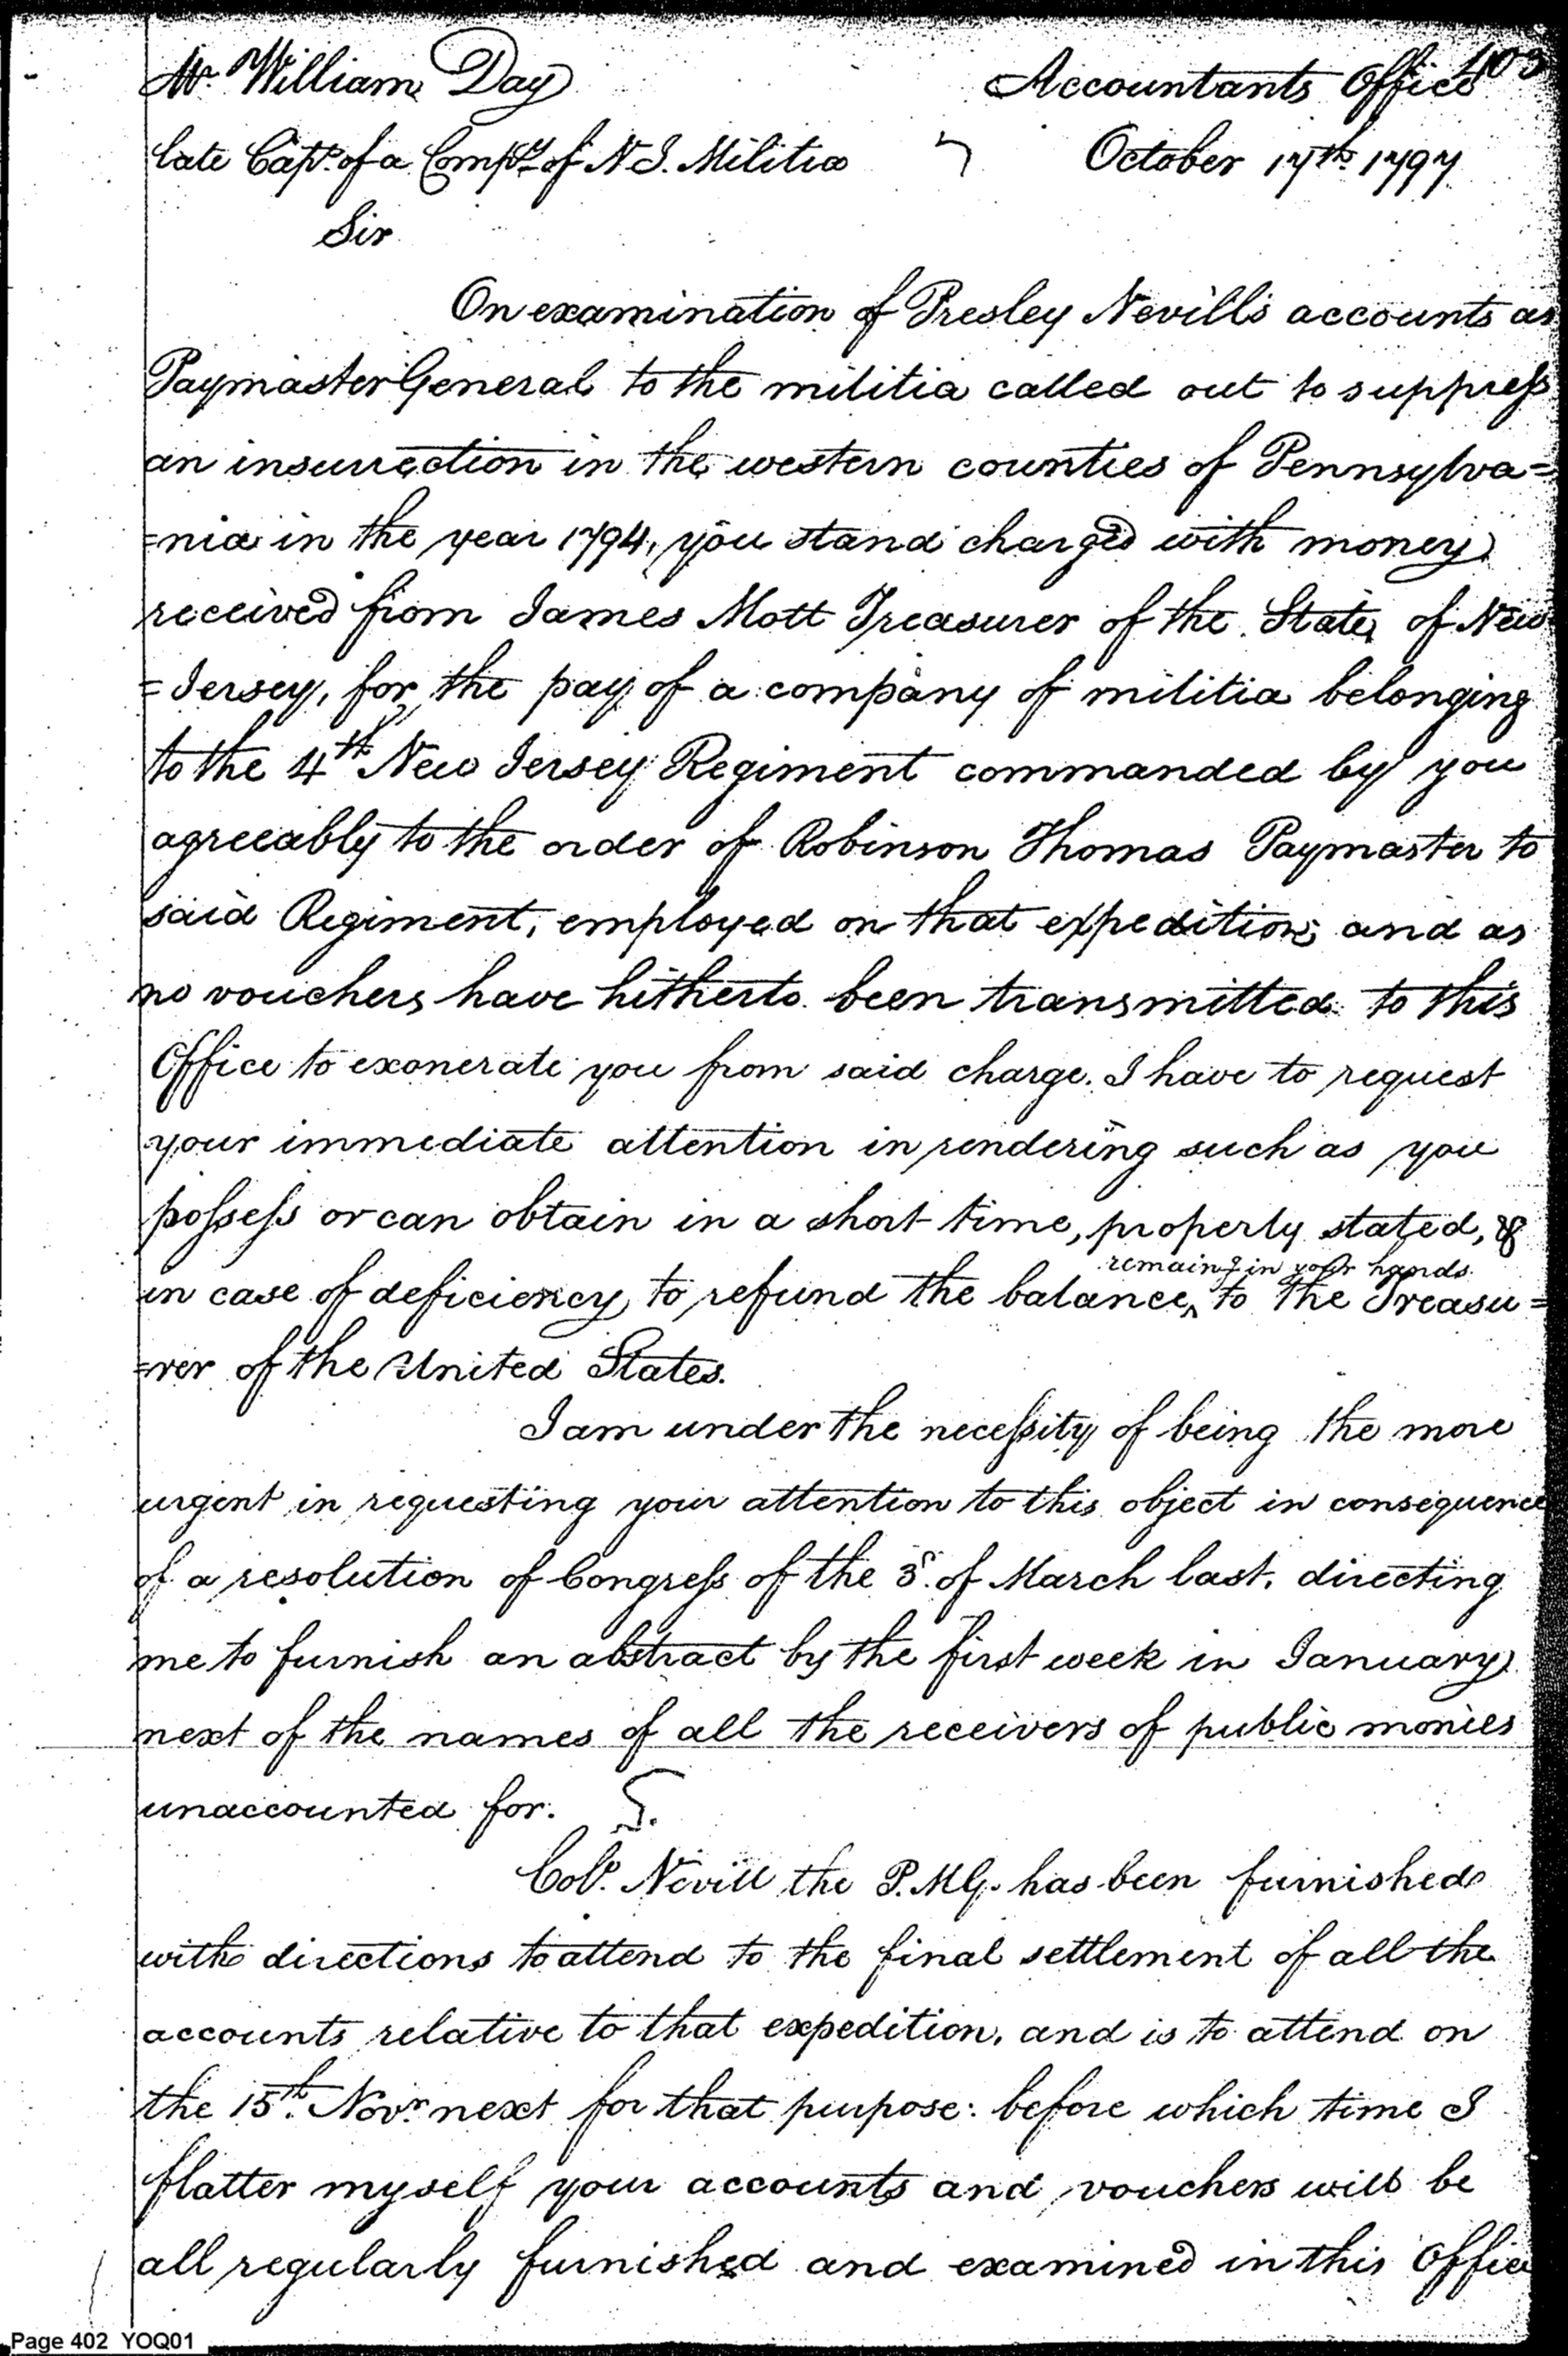 403
Mr. William Day Accountants Office
late Capt. of a Compy. of N J. Militia October 17th. 1797.
Sir
On examination of Presley Nevill's accounts as
Paymaster General to the militia called out to suppress
an insurrection in the western counties of Pennsylva=
=nia in the year 1794, you stand charged with money
received from James Mott Treasurer of the State of New
=Jersey, for the pay of a company of militia belonging
to the 4th New Jersey Regiment commanded by you
agreeably to the order of Robinson Thomas Paymaster to
said Regiment, employed on that expedition; and as
no vouchers have hitherto been transmitted to this
Office to exonerate you from said charge. I have to request
your immediate attention in rendering such as you
possess or can obtain in a short time, properly stated, &
remaing in your hands.
in case of deficiency to refund the balance, to the Treasu=
=rer of the United States.
I am under the necessity of being the more
urgent in requesting your attention to this object in consequence
of a resolution of Congress of the 3d. of March last, directing
me to furnish an abstract by the first week in January
next of the names of all the receivers of public monies
unaccounted for.
Colo. Nevill the P.M.G. has been furnished
with directions to attend to the final settlement of all the
accounts relative to that expedition, and is to attend on
the 15th. Novr. next for that purpose: before which time I
flatter myself your accounts and vouchers will be
all regularly furnished and examined in this Office
Page 402 YOQ01